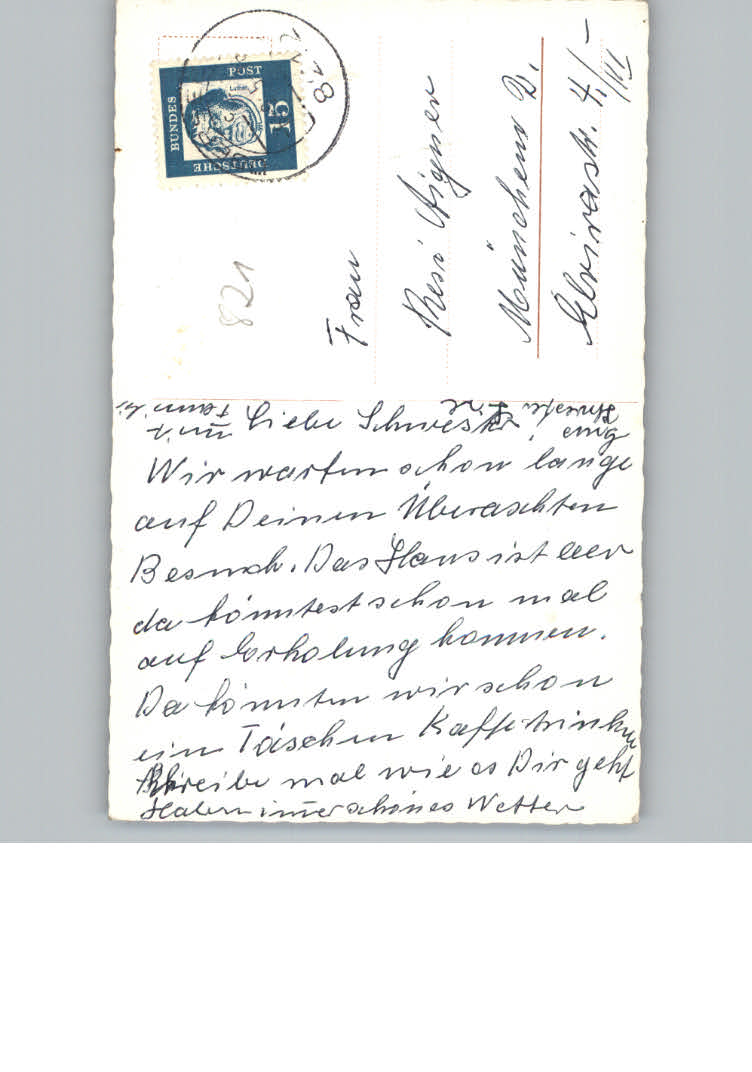 Liebe Schwester!
Wir warten schon lange
auf Deinen Überaschten
Besuch. Das Haus ist leer
da könntest schon mal
auf Erholung kommen.
Da könnten wir schon
ein Täschen Kaffe trinken
Schreibe mal wie es Dir geht
Haben imer schönes Wetter
mit
Fam.
Frau
Resi Aigner
München 2.
Elvirastr. 4./-
/III
821
DEUTSCHE
BUNDES
POST
15
Luther